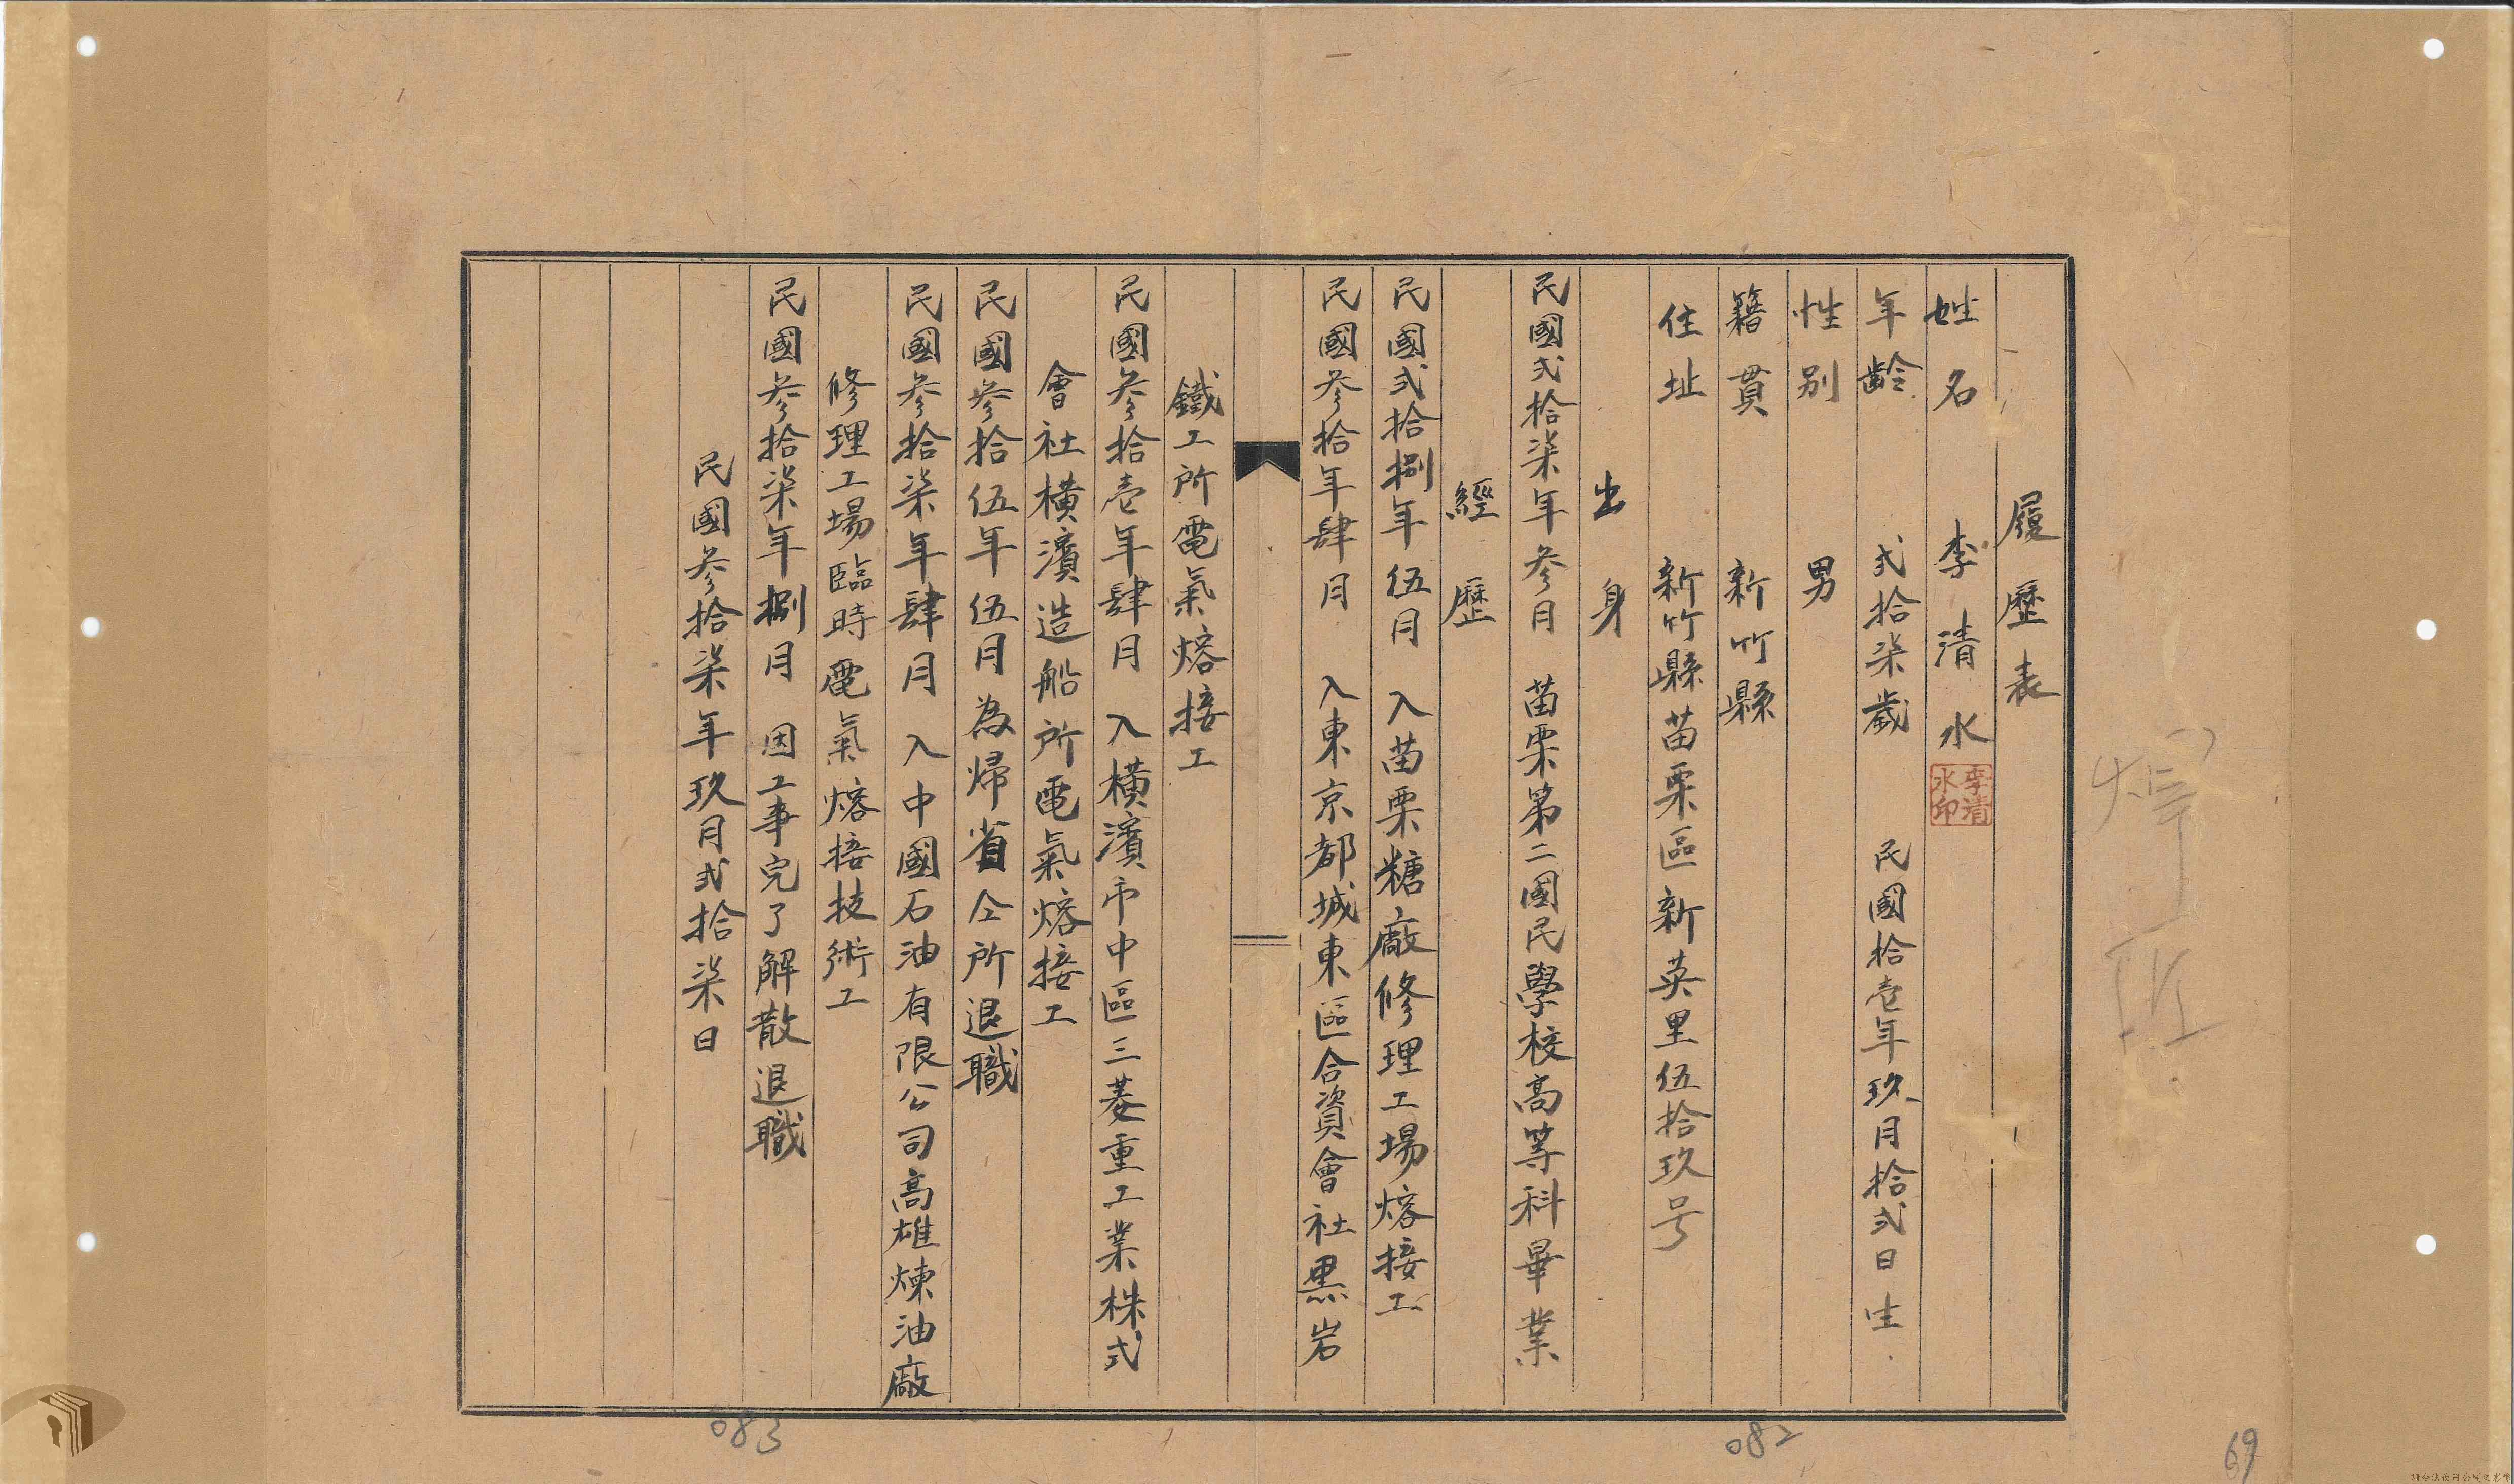 履歷表
姓名 李清水
李清水印
年齡 弍拾柒歲 民國拾壱年玖月拾弍日生
性別 男
籍貫 新竹縣
住址 新竹縣苗栗區新英里伍拾玖号
出身
民國弍拾柒年參月 苗栗第二國民學校高等科畢業
經歷
民國弍拾捌年伍月 入苗栗糖廠修理工場熔接工
民國參拾年肆月 入東京都城東區合資會社黒岩
鐵工所電氣熔接工
民國參拾壱年肆月 入橫濱市中區三菱重工業株式
會社橫濱造船所電氣熔接工
民國參拾伍年伍月為帰省仝所退職
民國參拾柒年肆月 入中國石油有限公司高雄煉油廠
修理工場臨時電氣熔接技術工
民國參拾柒年捌月 因工事完了解散退職
民國參拾柒年玖月弍拾柒日
082
083
69
請合法使用公開之影像